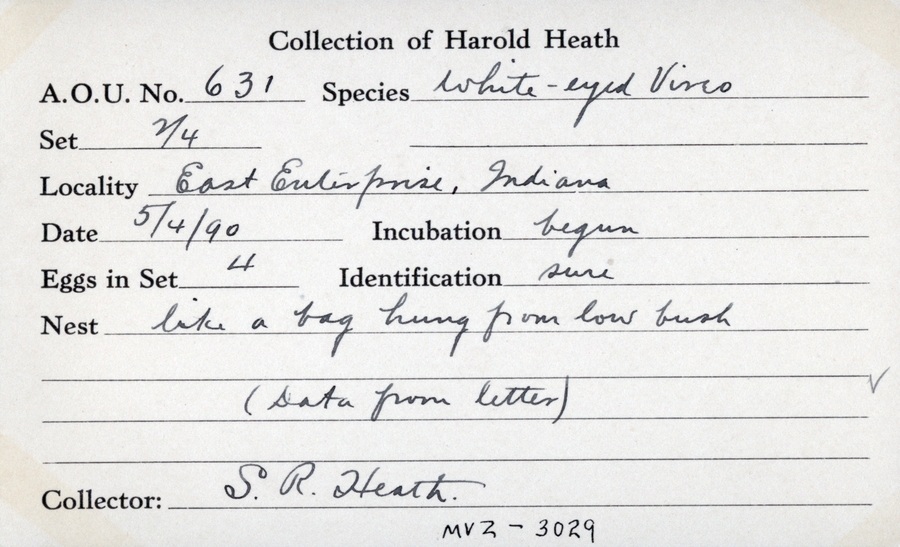 Collection of Harold Heath
A.O.U. No. 631 Species White-eyed Vireo
Set 7/4
Locality East Enterprise, Indiana
Date 5/4/90 Incubation begun
Eggs in Set 4 Identification sure
Nest like a bag hung from low bush
(Data from letter)
Collector: S. R. Heath.
MVZ - 3029